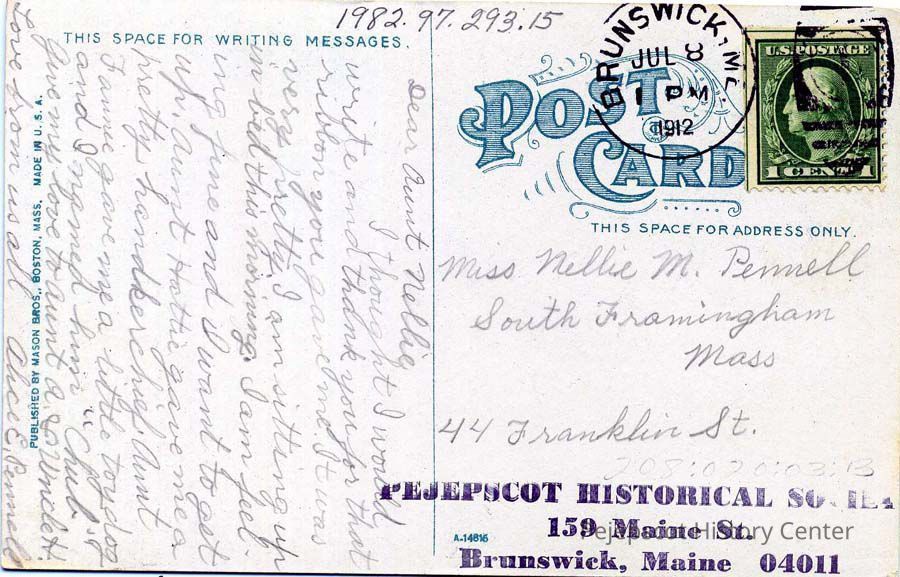 1982.97.293.15
THIS SPACE FOR WRITING MESSAGES.
Dear Aunt Nellie
I thought I would
write and thank you for that
ribbon you gave me. It was
very pretty. I am sitting up
in bed this morning. I am feel-
ing fine and I want to get
up. Aunt Hattie gave me a
pretty handkerchief. Aunt
Fannie gave me a little toy dog
and I named him
Give my love to Aunt
Love from us all Alice E. Pennell
PUBLISHED BY MASON BROS., BOSTON, MASS. MADE IN U.S.A.
BRUNSWICK, ME.
JUL 8
1 PM
1912
U.S. POSTAGE
1 CENT 1
POST
CARD
THIS SPACE FOR ADDRESS ONLY.
Miss Nellie M. Pennell
South Framingham
Mass
44 Franklin St.
208:020:03:13
PEJEPSCOT HISTORICAL SOCIETY
159 Maine St.
Brunswick, Maine 04011
Pejepscot History Center
A-14816